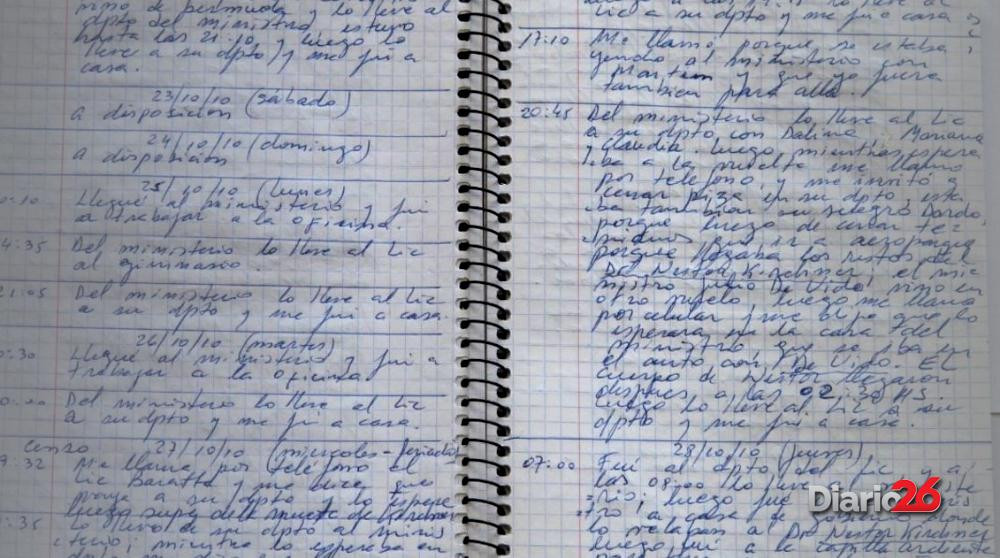 mino de permuda y lo lleve al
dpto del ministro, estuvo
hasta las 21:10 y luego lo
lleve a su dpto y me fui a
casa.
23/10/10 (sábado)
a disposición
24/10/10 (domingo)
a disposición
25/10/10 (lunes)
:10 Llegué al ministerio y fui
a trabajar a la oficina.
4:35 Del ministerio lo lleve al Lic
al gimnasio.
21:05 Del ministerio lo lleve al Lic
a su dpto y me fui a casa.
26/10/10 (martes)
:30 Llegué al ministerio y fui a
trabajar a la oficina
Del ministerio lo lleve al Lic
a su dpto y me fui a casa.
Censo 27/10/10 (miercoles-feriado)
9:32 Me llama por teléfono el
Lic Baratta y me dice que
a su dpto y lo espere
luego supe de la muerte de
:35 lo lleve de su dpto al minis
terio; mientras lo esperaba en
Lic a su dpto y me fui a casa
17:10 Me llamo, porque se estaba
yendo al ministerio con
y que yo fuera
tambien para alla.
20:45 Del ministerio lo lleve al Lic
a su dpto con Dalina, Mariana
y Claudia. Luego, mientras espera
ba a la me llamo
por telefono, y me invitó a
cenar pizza en su dpto, esta
ba tambien su suegro Dardo,
porque luego de cenar te
que ir a aeroparque
porque llegaba los restos del
Dr. Nestor Kirchner; el mi
nistro Julio De Vido, vino en
otro vuelo, luego me llama
por celular y me dijo que lo
esperara en la casa del
ministro que se iba en
el auto con De Vido. El
cuerpo de Nestor llegaron
despues a las 02:30 HS.
Luego lo lleve al Lic a su
dpto y me fui a casa.
28/10/10 (jueves)
07:00 Fui al dpto del Lic y a
las 08:00 lo lleve a
rio; luego fue
tro a casa de gobierno donde
lo velaban a Dr. Nestor Kirchner
luego fui a la
Diario26